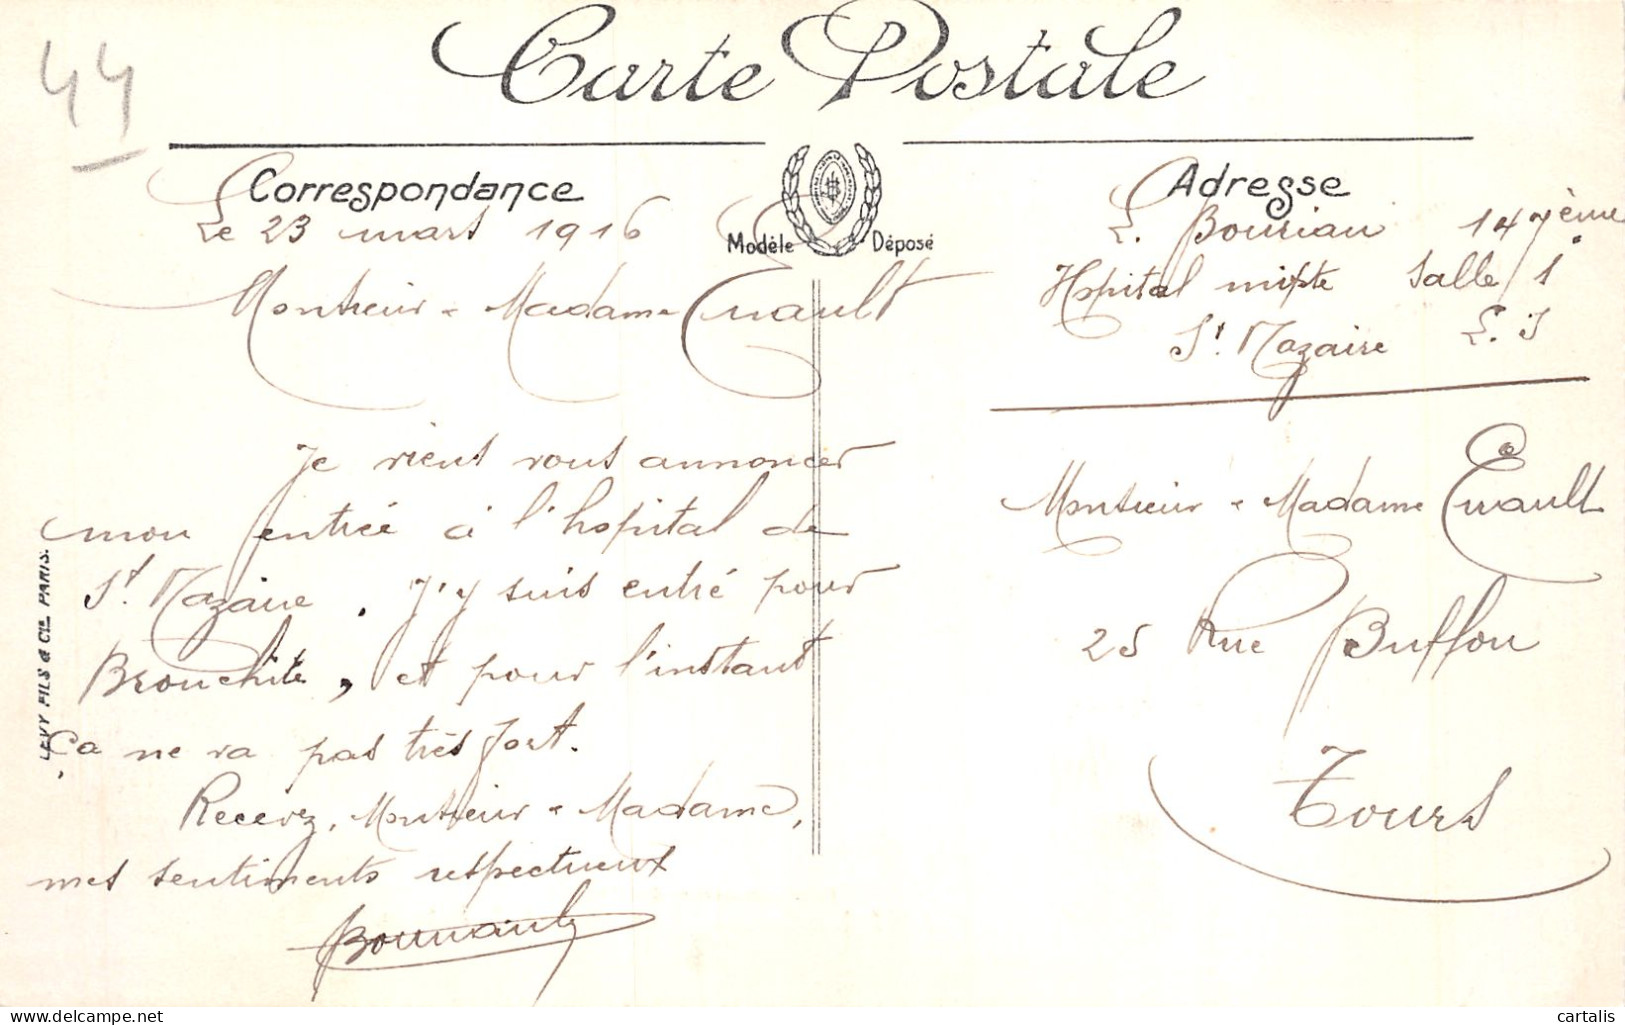 44
Carte Postale
Correspondance
Le 23 mars 1916
Monsieur & Madame Evault
Je viens vous annoncer
mon entrée à l'hopital de
St. Nazaire. J'y suis entré pour
Bronchite, et pour l'instant
Ça ne va pas très fort.
Recevez, Monsieur & Madame,
mes sentiments respectueux
Modèle Déposé
LEVY FILS & Cie PARIS.
Adresse
147ème
Hopital mixte Salle 1
St. Nazaire L. I
Monsieur & Madame Evault
25 Rue Buffon
Tours
cartalis